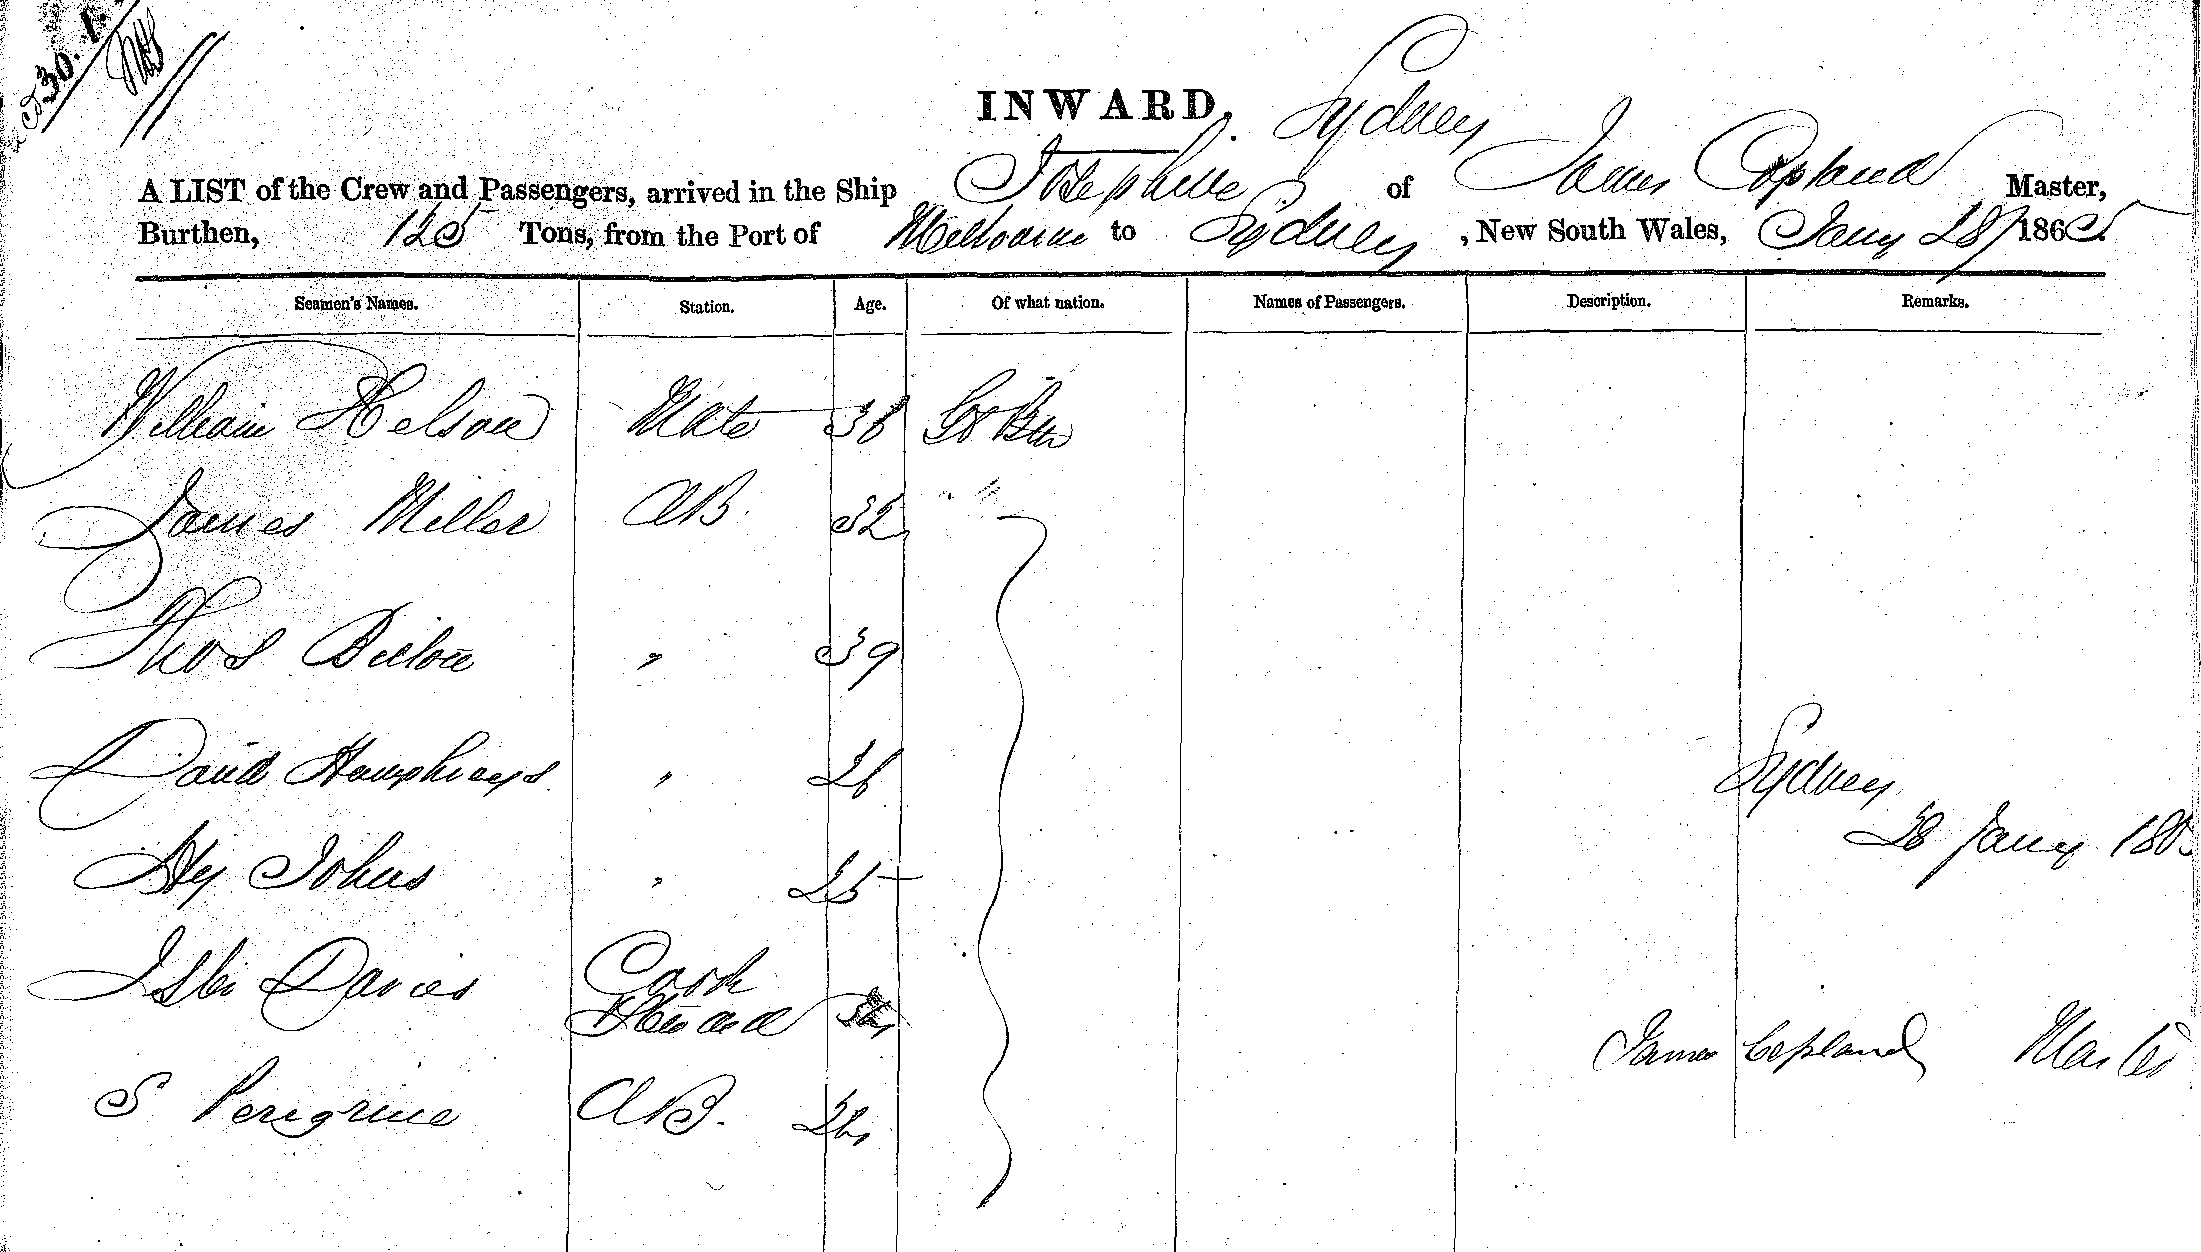 30.1.
INWARD. Sydney
A LIST of the Crew and Passengers, arrived in the Ship Josephine of James Copland Master,
Burthen, 125 Tons, from the Port of Melbourne to Sydney, New South Wales, Jany 28/1865
Seamen's Names. Station. Age. Of what nation. Names of Passengers. Description. Remarks.
William Helson Mate 36 Gt Btn
James Miller AB. 32 " "
Thos " 39
David Humphreys " 26
Sydney
28 Jany 186
Hy Johns " 25
Davies Cook
Steward
James Copland Master
S Peregrine AB.